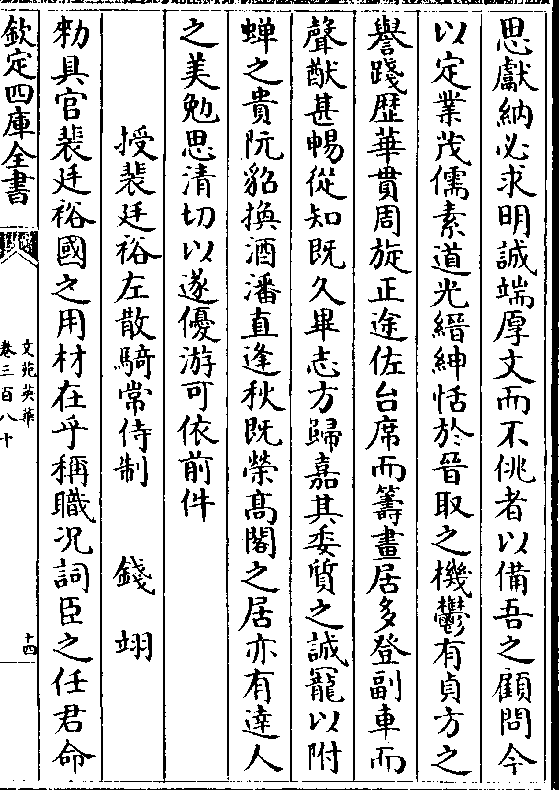 思獻納必求明誠端厚文而不佻者以備吾之顧問今
以定業茂儒素道光縉紳恬於晉取之機鬱有貞方之
譽踐歴華貫周旋正途佐台席而籌畫居多登副車而
聲猷甚暢從知既久畢志方歸嘉其委質之誠寵以附
蟬之貴阮貂換酒潘直逢秋既榮髙閣之居亦有達人
之美勉思清切以遂優游可依前件
授裴廷裕左散騎常侍制 錢翊
勑具官裴廷裕國之用材在乎稱職況詞臣之任君命
欽定四庫全書
文苑英華
卷三百八十
十四